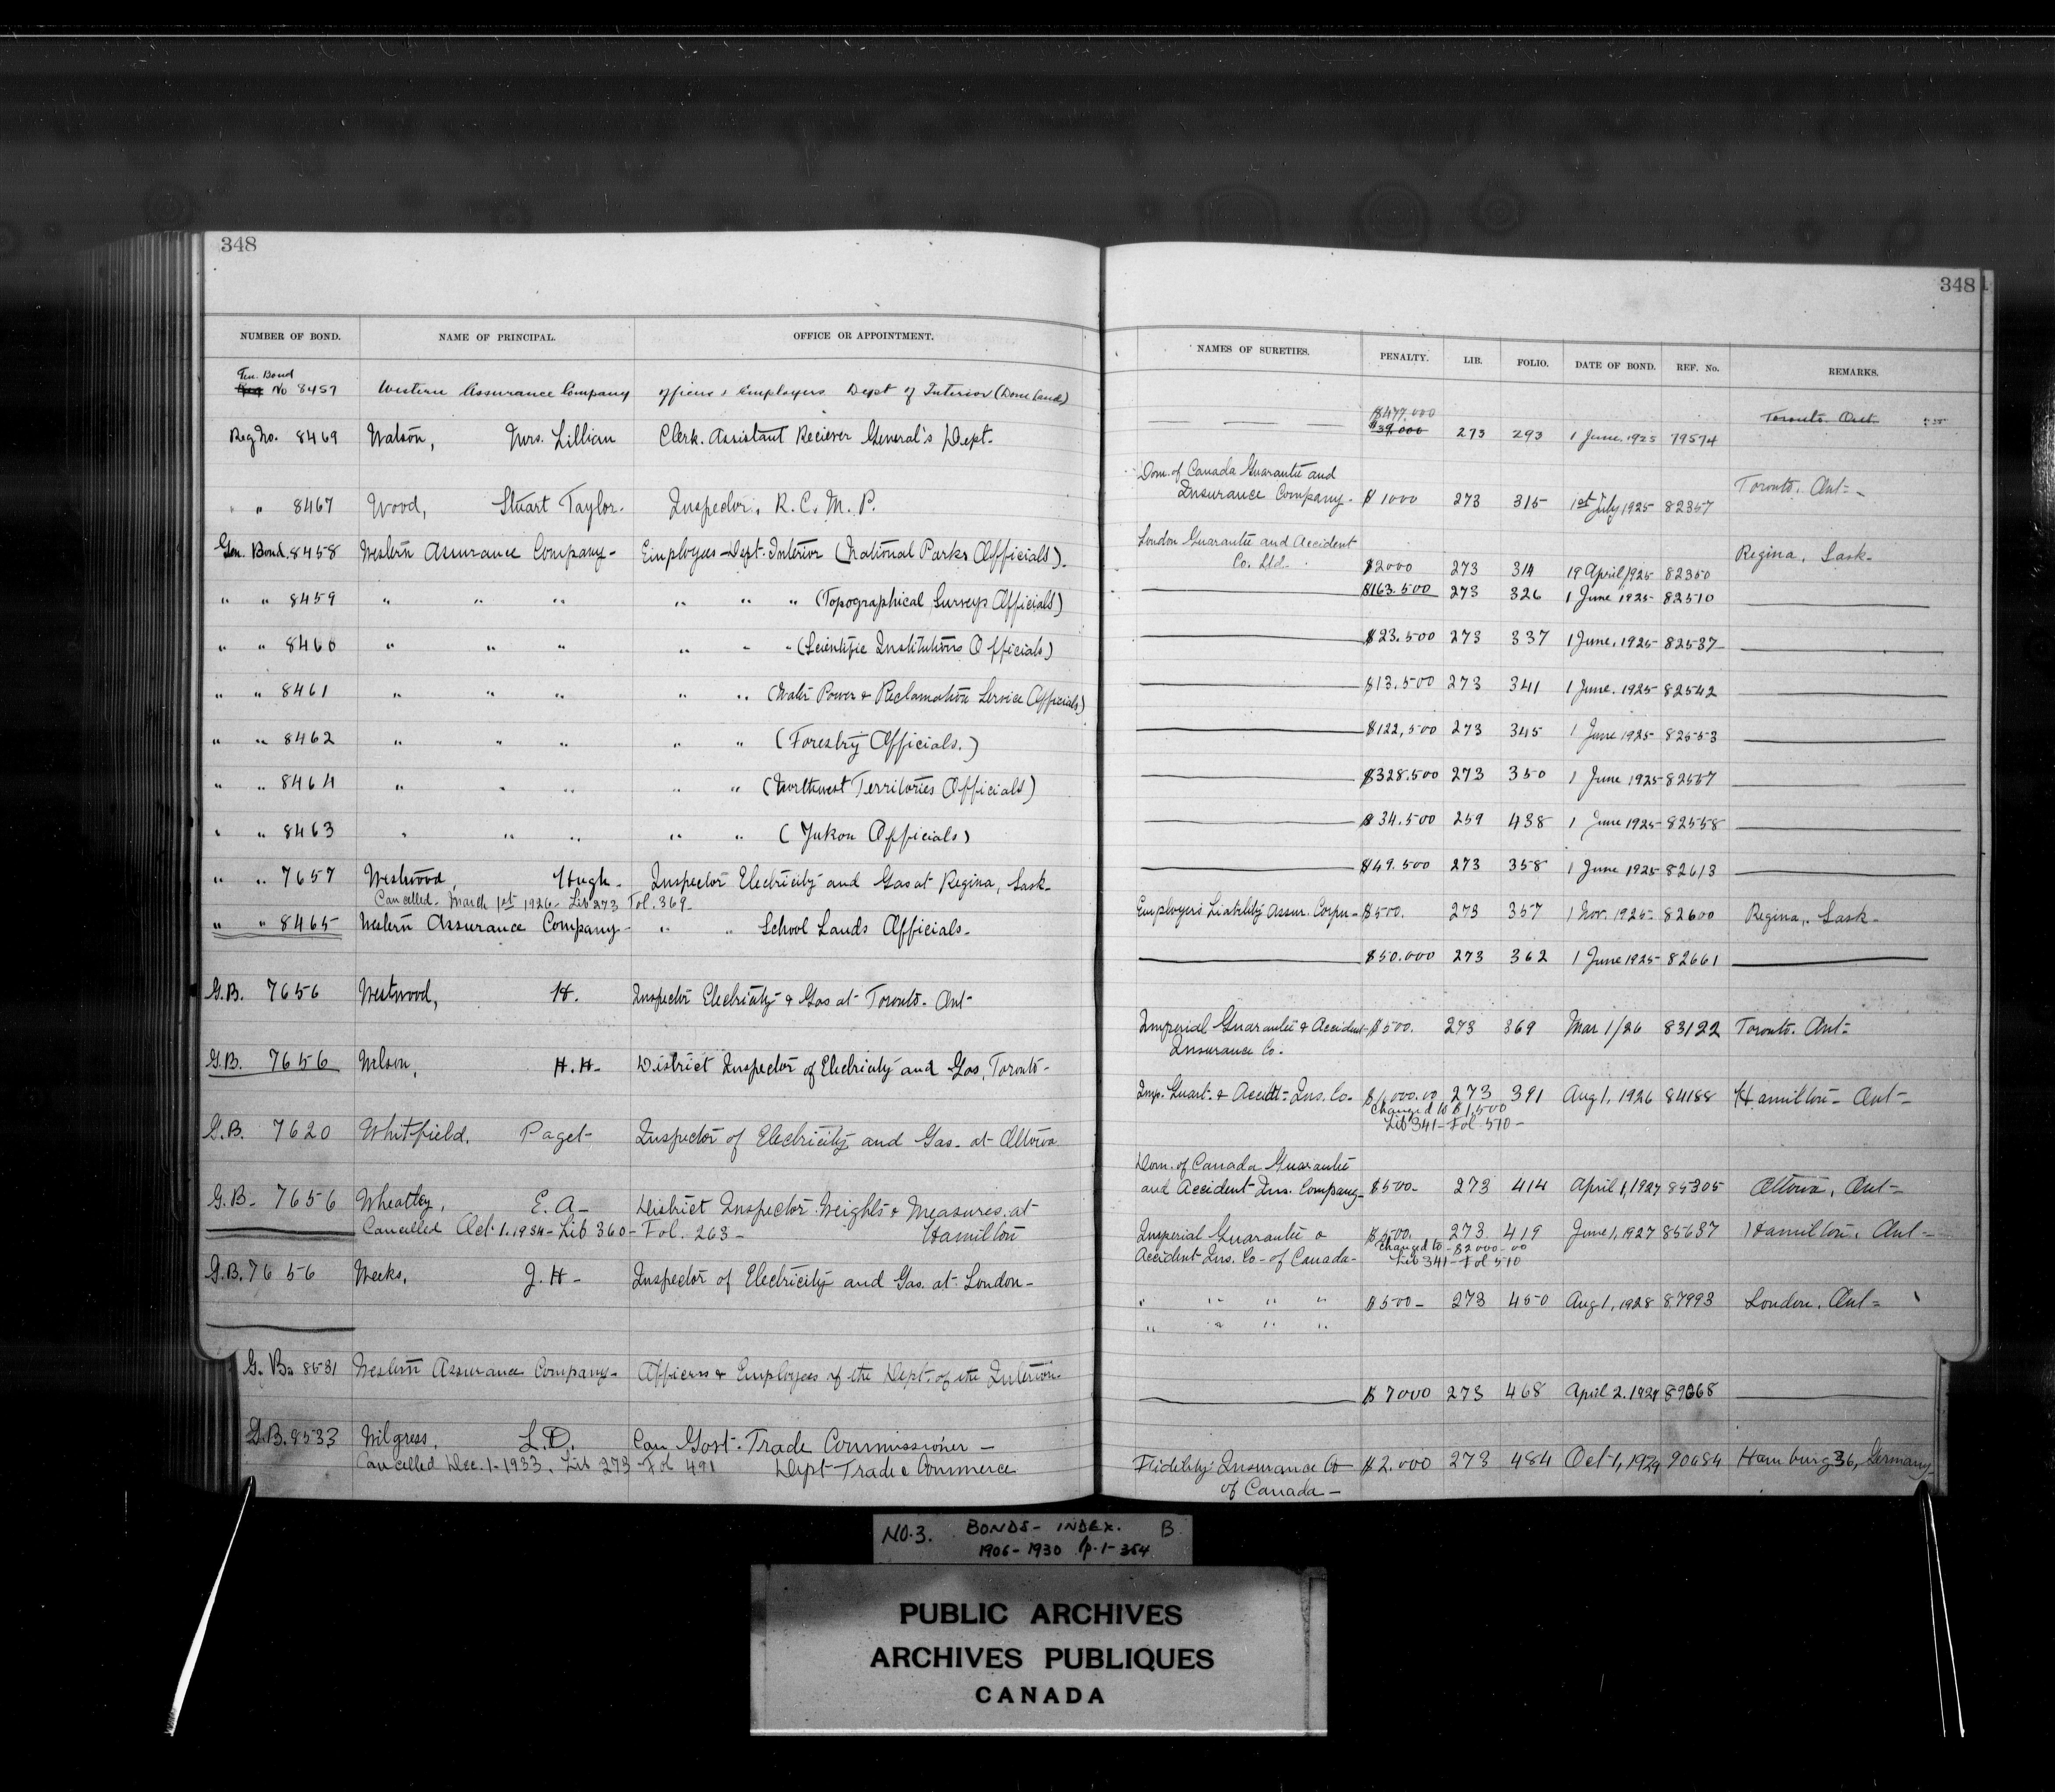 348
NUMBER OF BOND. NAME OF PRINCIPAL. OFFICE OR APPOINTMENT.
Gen. Bond
No 8457 Western Assurance Company officers & Employees Dept of Interior (Dom Lands)
Reg No. 8469 Watson, Mrs. Lillian Clerk. Assistant Reciever General's Dept.
" " 8467 Wood, Stuart Taylor. Inspector, R.C.M.P.
Gen. Bond. 8458 Western Assurance Company- Employees-Dept. Interior (National Parks Officials).
" " 8459 " " " " " " (Topographical Surveys Officials)
" " 8460 " " " " " " (Scientific Institutions Officials)
" " 8461 " " " " " (Water Power & Reclamation Service Officials)
" " 8462 " " " " " (Forestry Officials.)
" " 8464 " " " " " (Northwest Territories Officials)
" " 8463 " " " " " (Yukon Officials)
" " 7657 Westwood, Hugh- Inspector Electricity and Gas at Regina, Sask-
Cancelled- March 1st 1926- Lib 273 Fol. 369-
" " 8465 Western Assurance Company- " " School Lands Officials-
G.B. 7656 Westwood, H. Inspector Electricity & Gas at Toronto- Ont
G.B. 7656 Wilson, H.H- District Inspector of Electricity and Gas, Toronto-
G.B. 7620 Whitfield, Paget- Inspector of Electricity and Gas- at Ottawa
G.B- 7656 Wheatley, E.A- District Inspector Weights & Measures at
Cancelled Oct. 1. 1934- Lib 360- Fol. 263- Hamilton
G.B. 7656 Weeks, J.H- Inspector of Electricity and Gas. at London-
G.B. 8531 Western Assurance Company- Officers & Employees of the Dept. of the Interior-
G.B. 8533 Wilgress, L.D. Can Govt. Trade Commissioner-
Cancelled Dec. 1-1933. Lib 273 - Fol 491 Dept Trade & Commerce
348
NAMES OF SURETIES. PENALTY. LIB. FOLIO. DATE OF BOND. REF. No. REMARKS.
$477.000 Toronto Ont
$39.000 273 293 1 June. 1925 79574
Dom. of Canada Guarantee and
Insurance Company- $1000 273 315 1st July 1925 82357 Toronto. Ont-
London Guarantee and Accident
Co. Ltd. $2000 273 314 19 April 1925 82350 Regina, Sask-
$163.500 273 326 1 June 1925 82510
$23.500 273 337 1 June. 1925 82537
$13.500 273 341 1 June. 1925 82542
$122,500 273 345 1 June 1925 82553
$328.500 273 350 1 June 1925 82557
$34.500 259 438 1 June 1925 82558
$49.500 273 358 1 June 1925 82613
Employers Liability Assur. Corpn- $500. 273 357 1 Nov. 1925- 82600 Regina, Sask-
$50.000 273 362 1 June 1925 82661
Imperial Guarantee & Accident- $500. 273 369 Mar 1/26 83122 Toronto. Ont-
Insurance Co.
Imp. Guart. & Accidt- Ins. Co- $1,000.00 273 391 Aug 1, 1926 84188 Hamilton- Ont-
Changed to $1,500
Lib 341- Fol 510-
Dom. of Canada Guarantee
and Accident Ins. Company- $500- 273 414 April 1, 1927 85305 Ottawa, Ont-
Imperial Guarantee & $500. 273. 419 June 1, 1927 85637 Hamilton. Ont-
Changed to- $2000-00
Accident Ins. Co- of Canada- Lib 341- Fol 510
" " " " $500- 273 450 Aug 1, 1928 87993 London, Ont-
" " " "
$7000 273 468 April 2. 1929 89068
Fidelity Insurance Co $2.000 273 484 Oct 1, 1929 90684 Hamburg 36, Germany-
of Canada-
NO.3. BONDS- INDEX. B
1906-1930 p.1-354
PUBLIC ARCHIVES
ARCHIVES PUBLIQUES
CANADA